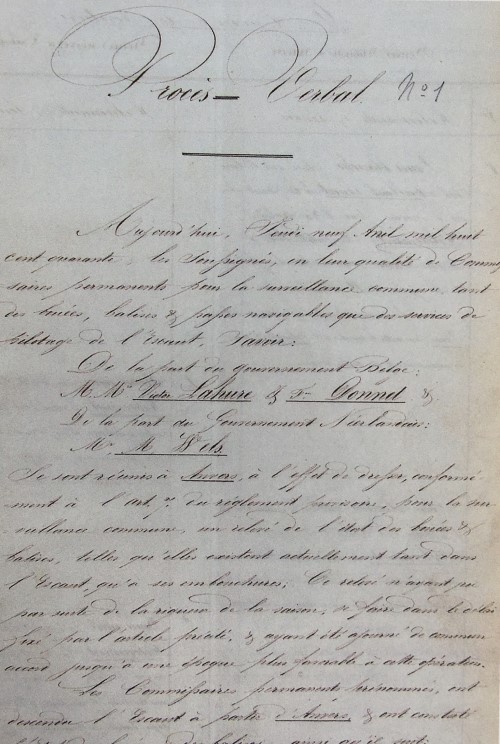 Procès = Verbal. N° 1
Aujourd'hui, Jeudi neuf Avril mil huit
cent quarante, les soussignés, en leur qualité de Commis
saires permanents pour la surveillance commune, tant
des bouées, balises & passes navigables que des services de
pilotage de l'Escaut, Savoir:
De la part du gouvernement Belge:
M. Mrs Victor Lahure & Fr Donnet &
De la part du Gouvernement Néerlandais:
Mr. M
Se sont réunis à Anvers, à l'effet de dresser, conformé-
ment à l'art. du règlement provisoire, pour la sur
veillance commune, un relevé de l'état des bouées &
balises, telles qu'elles existent actuellement tant dans
l'Escaut qu'à ses embouchures; Ce relevé n'ayant pu
par suite de la rigueur de la saison, se faire dans le délai
fixé par l'article précité, & ayant été ajourné de commun
accord jusqu'à une époque plus favorable à cette opération.
Les Commissaires permanents prénommés, ont
descendu l'Escaut à partir d'Anvers, & ont constaté